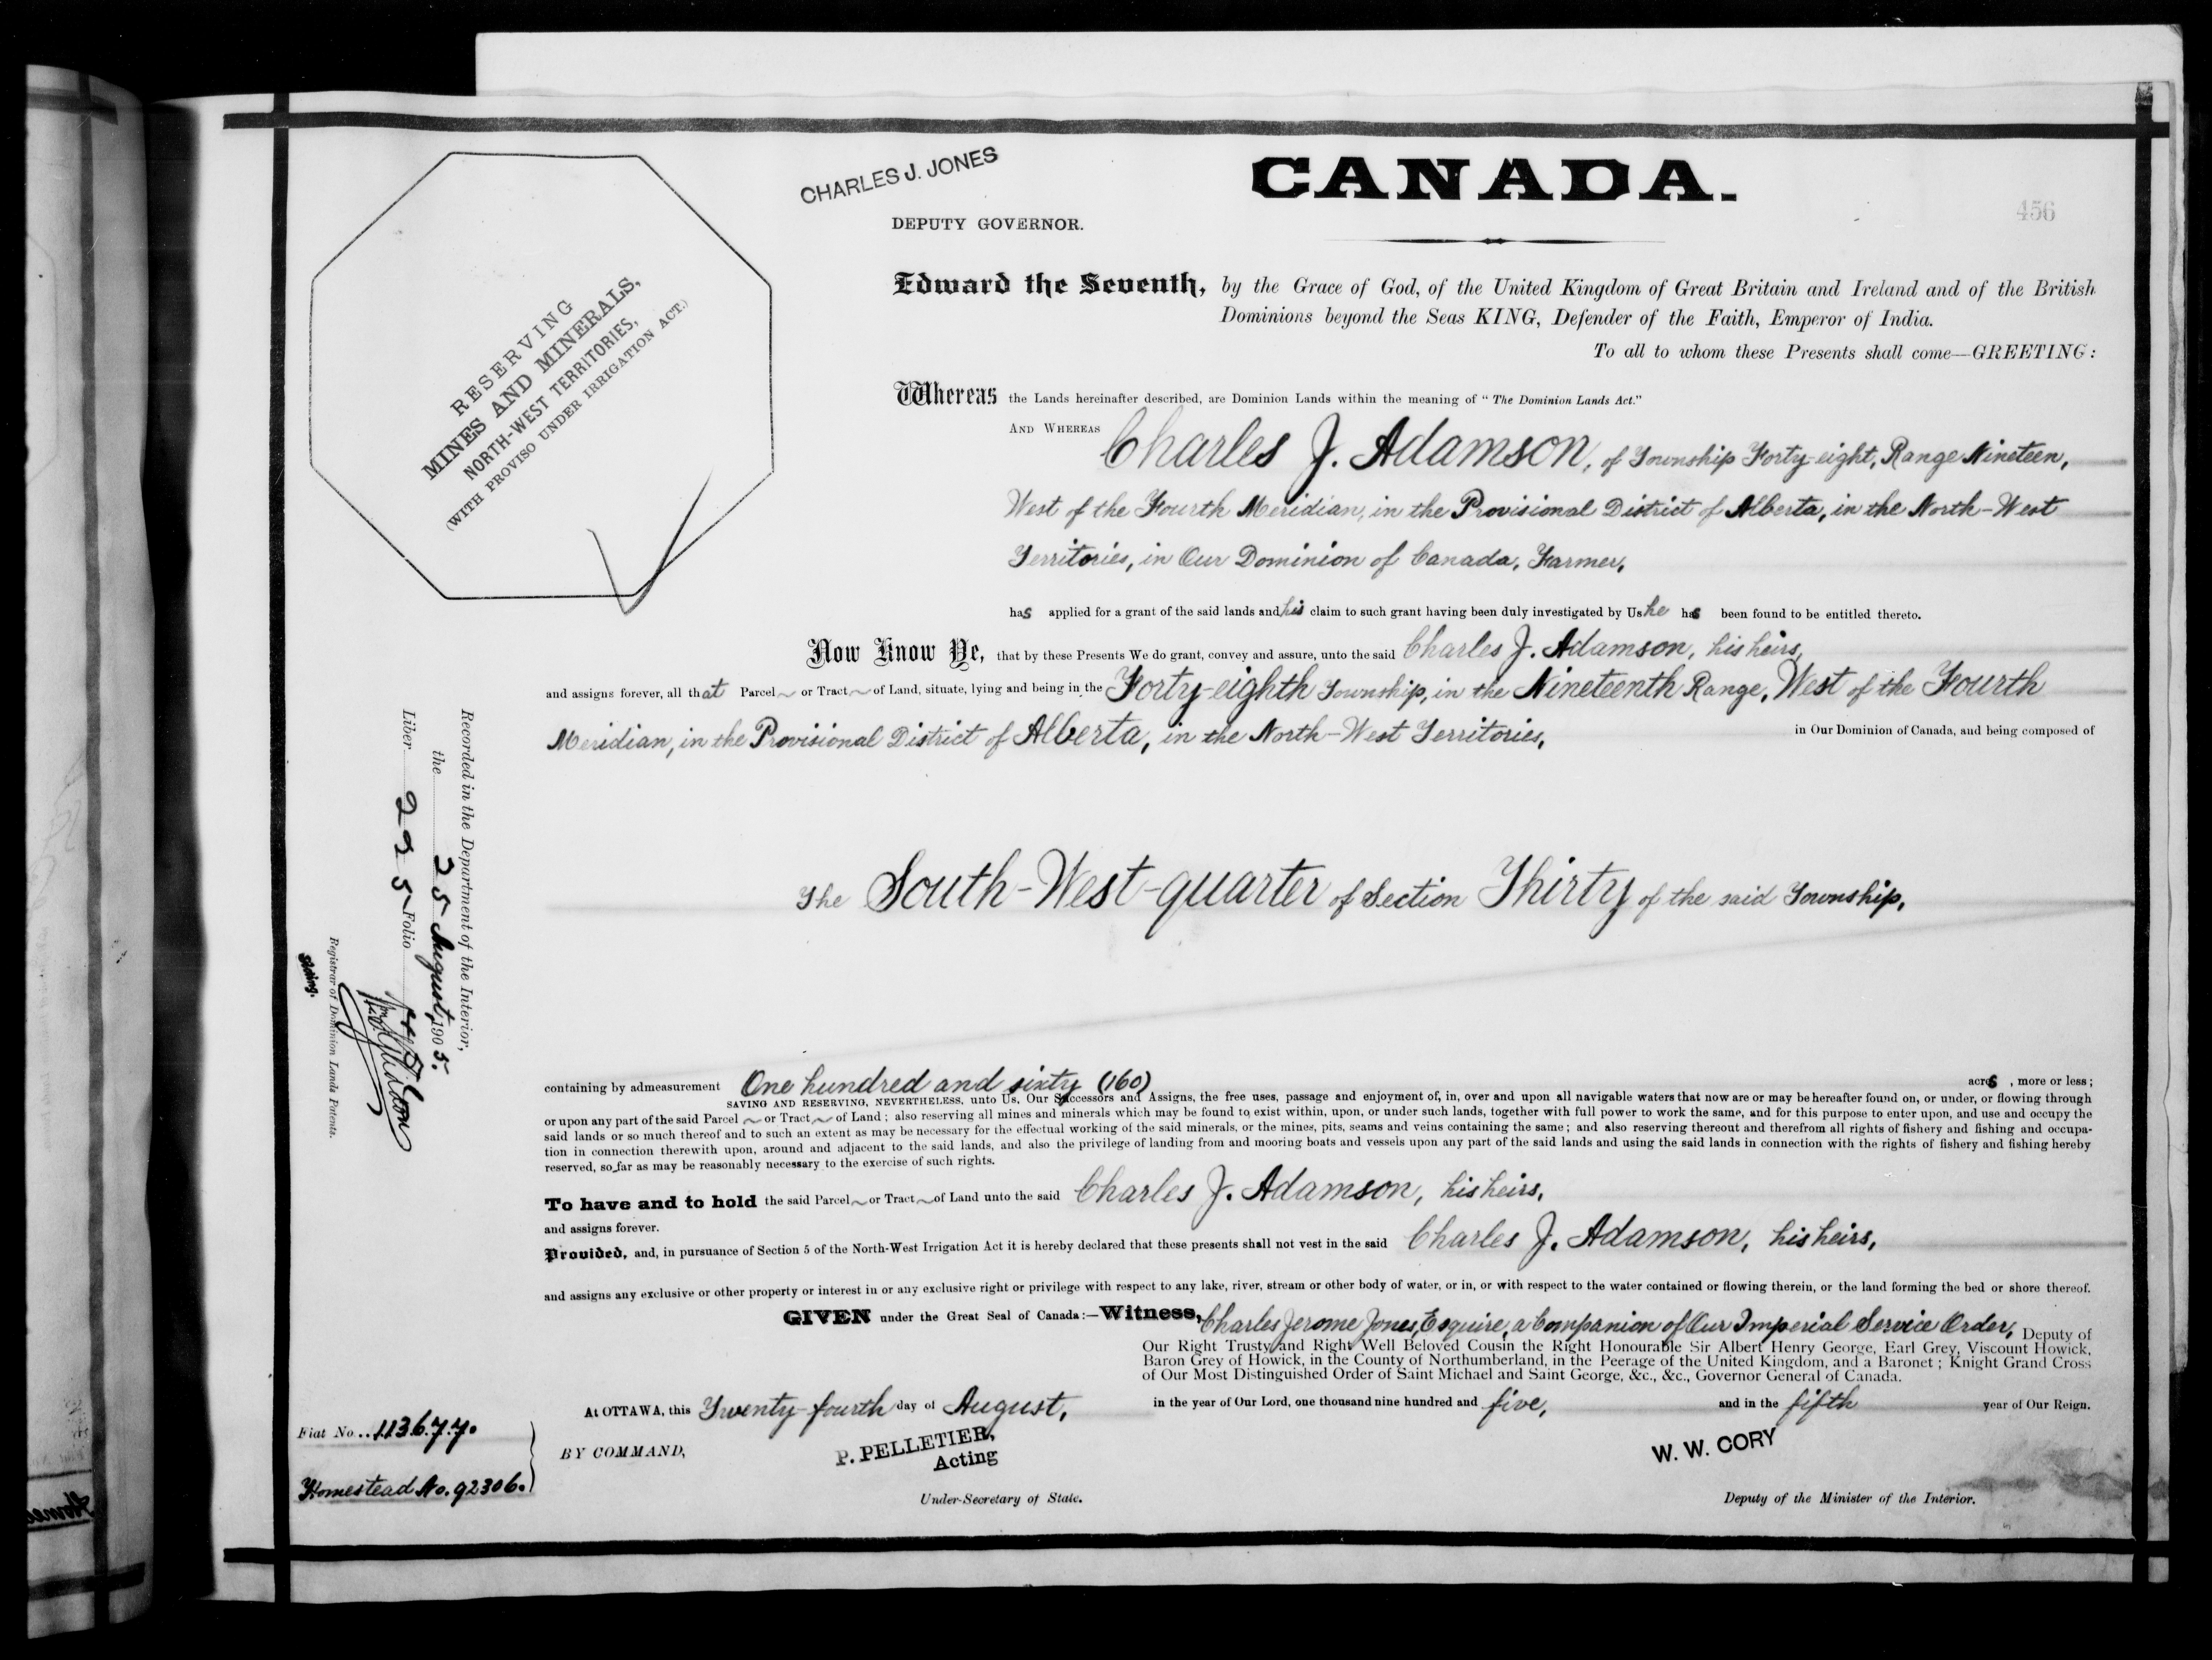 CHARLES J. JONES
CANADA.
DEPUTY GOVERNOR.
456
RESERVING
MINES AND MINERALS,
NORTH-WEST TERRITORIES,
(WITH PROVISO UNDER IRRIGATION ACT.)
Edward the Seventh, by the Grace of God, of the United Kingdom of Great Britain and Ireland and of the British
Dominions beyond the Seas KING, Defender of the Faith, Emperor of India.
To all to whom these Presents shall come—GREETING:
Whereas the Lands hereinafter described, are Dominion Lands within the meaning of "The Dominion Lands Act."
AND WHEREAS Charles J. Adamson, of Township Forty-eight, Range Nineteen,
West of the Fourth Meridian, in the Provisional District of Alberta, in the North-West
Territories, in Our Dominion of Canada, Farmer,
has applied for a grant of the said lands and his claim to such grant having been duly investigated by Us he has been found to be entitled thereto.
Now Know Ye, that by these Presents We do grant, convey and assure, unto the said Charles J. Adamson, his heirs,
and assigns forever, all that Parcel or Tract of Land, situate, lying and being in the Forty-eighth Township, in the Nineteenth Range, West of the Fourth
Meridian, in the Provisional District of Alberta, in the North-West Territories, in Our Dominion of Canada, and being composed of
The South-West-quarter of Section Thirty of the said Township,
Recorded in the Department of the Interior,
the 25 August, 1905.
Liber 225 Folio
Registrar of Dominion Lands Patents.
containing by admeasurement One hundred and sixty (160) acres, more or less;
SAVING AND RESERVING, NEVERTHELESS, unto Us, Our Successors and Assigns, the free uses, passage and enjoyment of, in, over and upon all navigable waters that now are or may be hereafter found on, or under, or flowing through
or upon any part of the said Parcel or Tract of Land; also reserving all mines and minerals which may be found to exist within, upon, or under such lands, together with full power to work the same, and for this purpose to enter upon, and use and occupy the
said lands or so much thereof and to such an extent as may be necessary for the effectual working of the said minerals, or the mines, pits, seams and veins containing the same; and also reserving thereout and therefrom all rights of fishery and fishing and occupa-
tion in connection therewith upon, around and adjacent to the said lands, and also the privilege of landing from and mooring boats and vessels upon any part of the said lands and using the said lands in connection with the rights of fishery and fishing hereby
reserved, so far as may be reasonably necessary to the exercise of such rights.
To have and to hold the said Parcel or Tract of Land unto the said Charles J. Adamson, his heirs,
and assigns forever.
Provided, and, in pursuance of Section 5 of the North-West Irrigation Act it is hereby declared that these presents shall not vest in the said Charles J. Adamson, his heirs,
and assigns any exclusive or other property or interest in or any exclusive right or privilege with respect to any lake, river, stream or other body of water, or in, or with respect to the water contained or flowing therein, or the land forming the bed or shore thereof.
GIVEN under the Great Seal of Canada:—Witness, Charles Jerome Jones, Esquire, a Companion of Our Imperial Service Order, Deputy of
Our Right Trusty and Right Well Beloved Cousin the Right Honourable Sir Albert Henry George, Earl Grey, Viscount Howick,
Baron Grey of Howick, in the County of Northumberland, in the Peerage of the United Kingdom, and a Baronet; Knight Grand Cross
of Our Most Distinguished Order of Saint Michael and Saint George, &c., &c., Governor General of Canada.
At OTTAWA, this Twenty-fourth day of August, in the year of Our Lord, one thousand nine hundred and five, and in the fifth year of Our Reign.
Fiat No. 113677.
BY COMMAND,
P. PELLETIER,
Acting
W. W. CORY
Homestead No. 92306.
Under-Secretary of State.
Deputy of the Minister of the Interior.